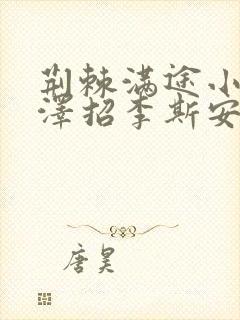 荆棘满途小
泽招李斯安
唐昊